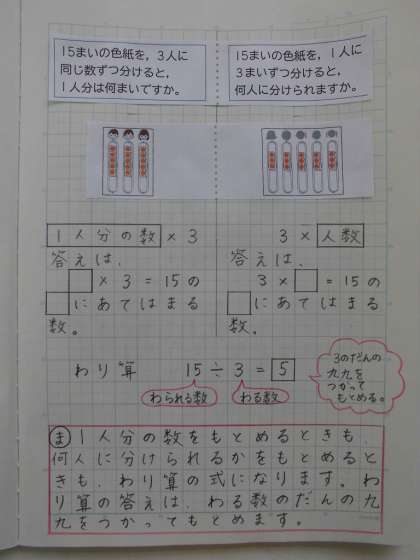 15まいの色紙を，3人に
同じ数ずつ分けると，
1人分は何まいですか。
15まいの色紙を，1人に
3まいずつ分けると，
何人に分けられますか。
1人分の数 × 3
答えは、
□ × 3 = 15の
□にあてはまる
数。
3 × 人数
答えは、
3 × □ = 15の
□にあてはまる
数。
わり算 15 ÷ 3 = 5
わられる数 わる数
3のだんの
九九を
つかって
もとめる。
ま 1人分の数をもとめるときも、
何人に分けられるかをもとめると
きも、わり算の式になります。わ
り算の答えは、わる数のだんの九
九をつかってもとめます。